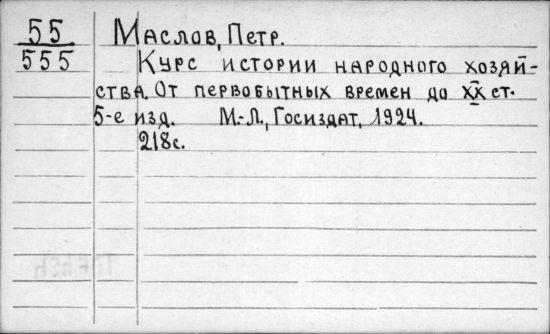 55
555
Маслов, Петр.
Курс истории народного хозяй-
ства. От первобытных времен до XX ст.
5-е изд. М.-Л., Госиздат, 1924.
218с.